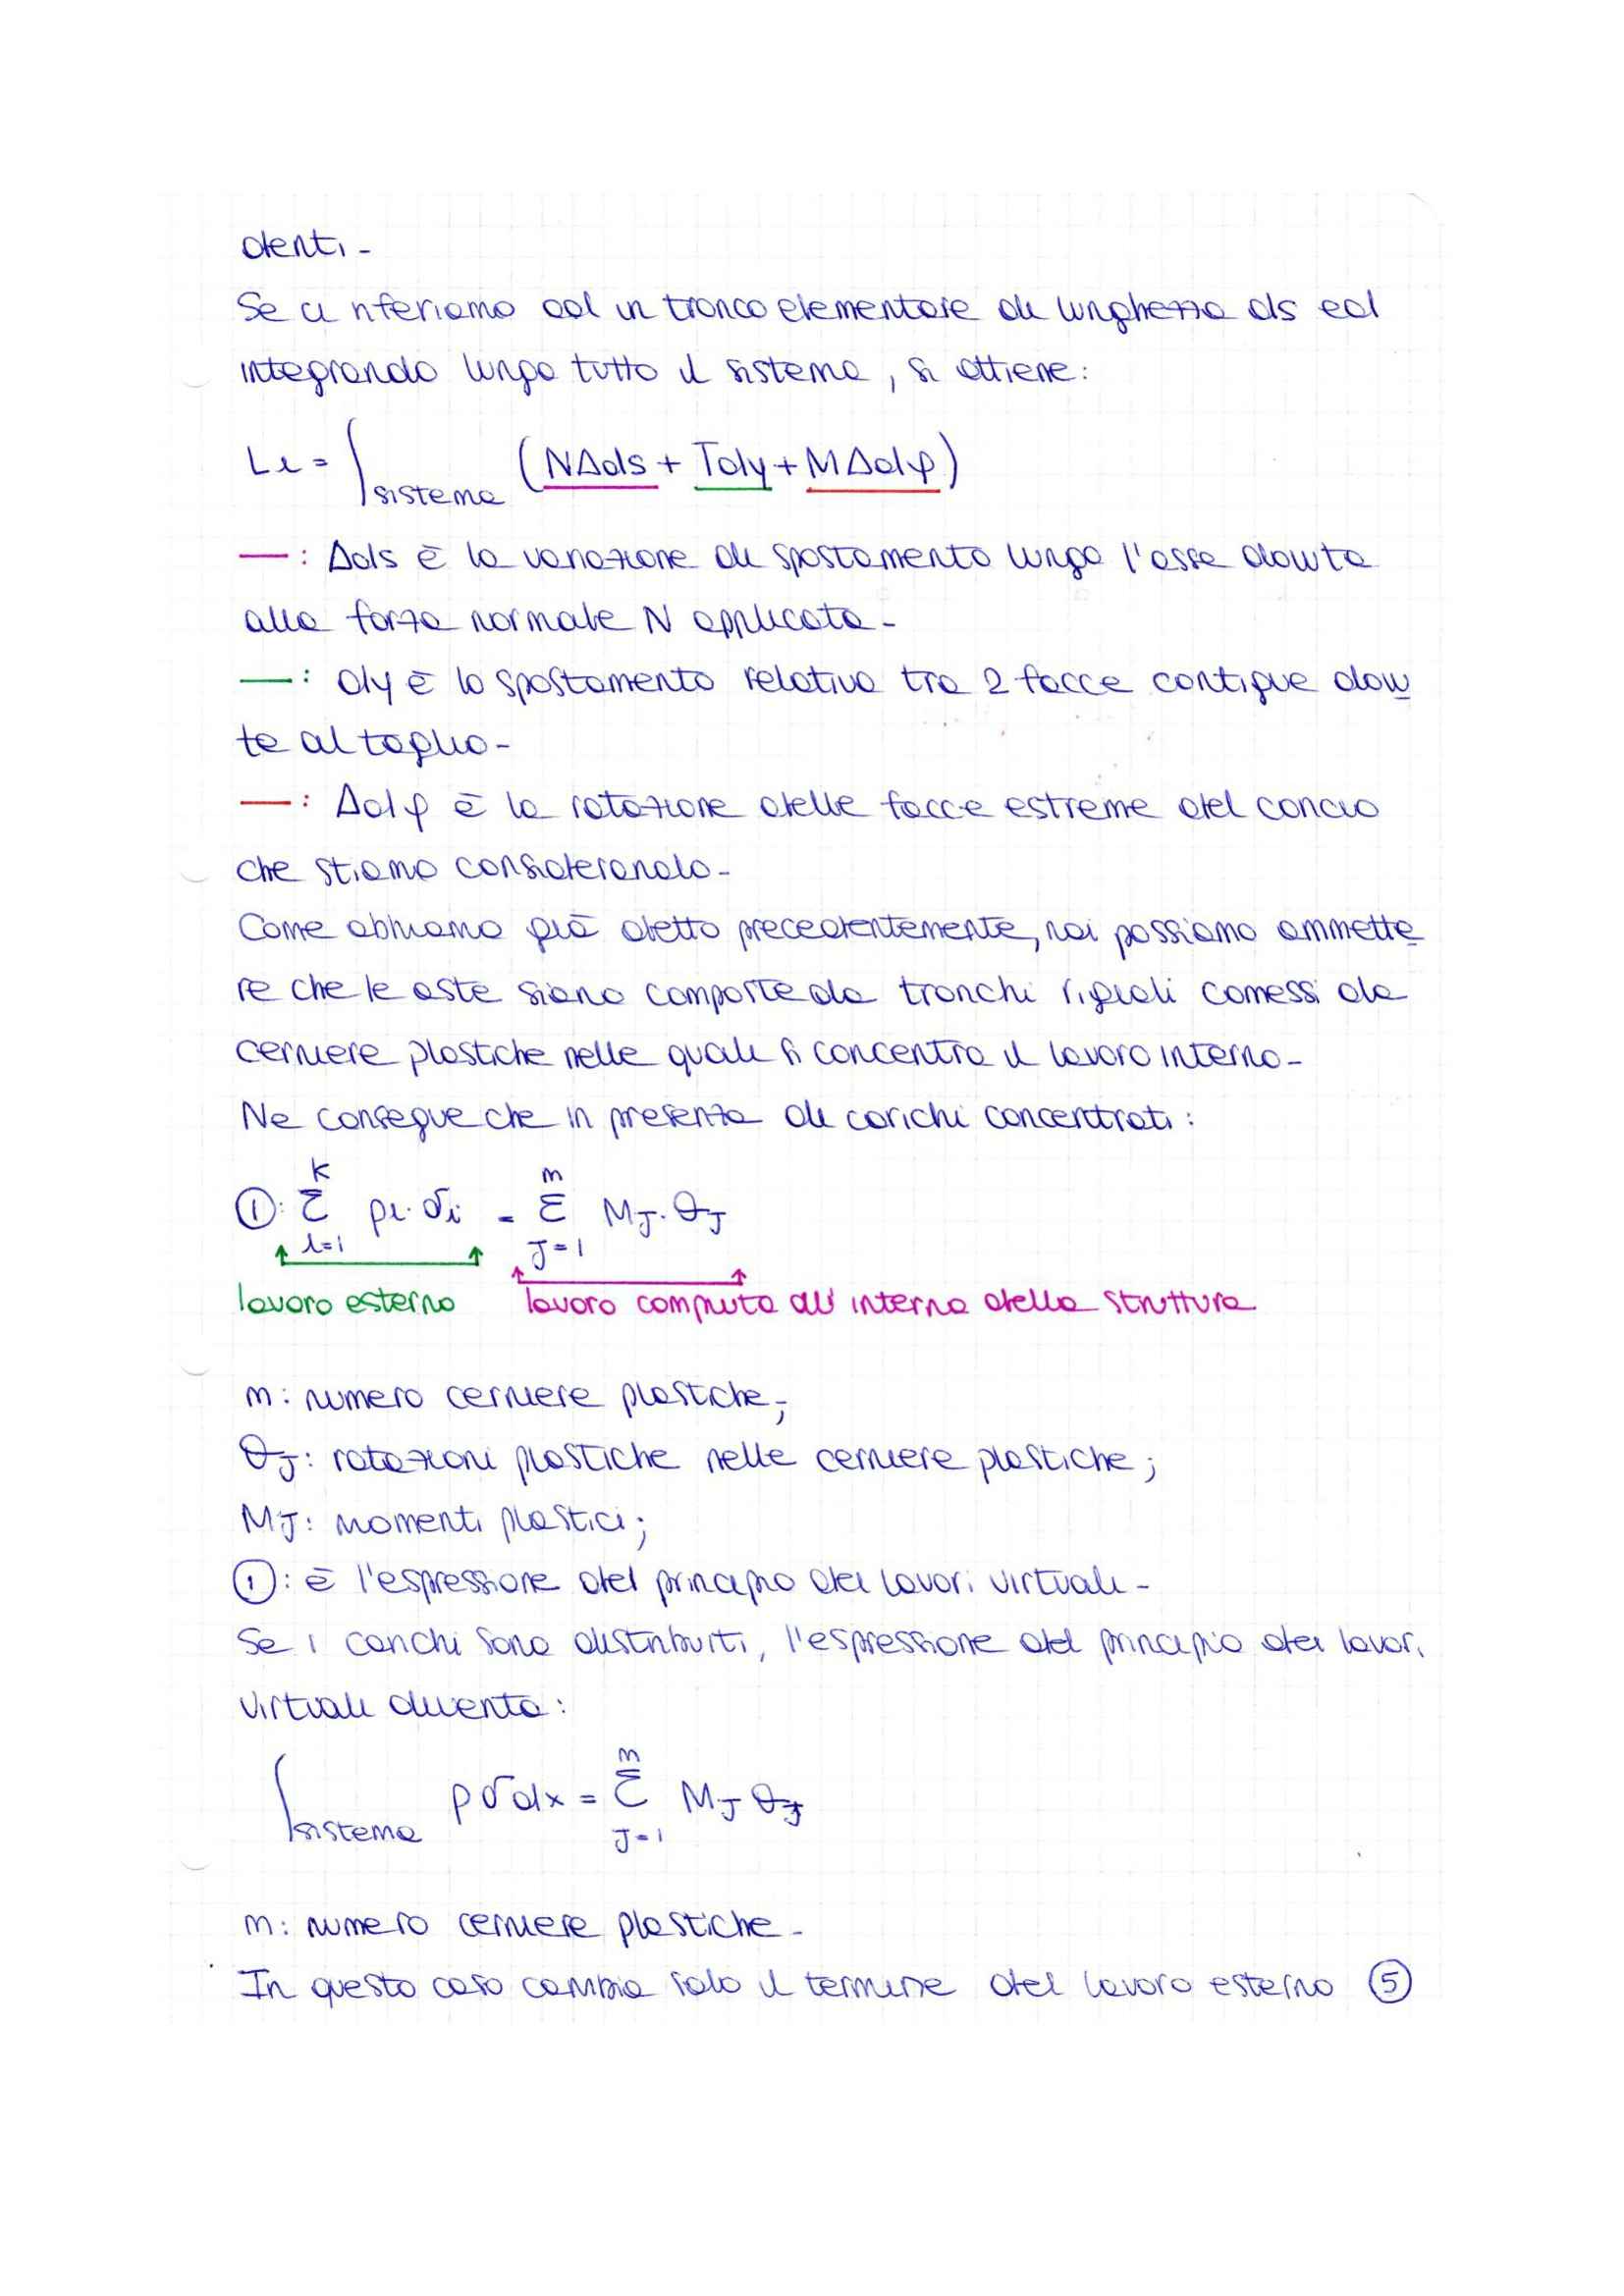 denti-
Se ci riferiamo ad un tronco elementare di lunghezza ds ed
integrando lungo tutto il sistema, si ottiene:
Li = ∫sistema (NΔds + Tdy + MΔdφ)
—: Δds è la variazione di spostamento lungo l'asse dovuta
alla forza normale N applicata-
—: dy è lo spostamento relativo tra 2 facce contigue dovu
te al taglio-
—: Δdφ è la rotazione delle facce estreme del concio
che stiamo considerando-
Come abbiamo già detto precedentemente, noi possiamo ammette
re che le aste siano composte da tronchi rigidi comessi da
cerniere plastiche nelle quali si concentra il lavoro interno-
Ne consegue che in presenza di carichi concentrati:
①: Σ_{i=1}^{k} pi · δi = Σ_{J=1}^{m} MJ · θJ
lavoro esterno lavoro compiuto all'interno della struttura
m: numero cerniere plastiche;
θJ: rotazioni plastiche nelle cerniere plastiche;
MJ: momenti plastici;
①: è l'espressione del principio dei lavori virtuali-
Se i carichi sono distribuiti, l'espressione del principio dei lavori
virtuali diventa:
∫sistema pδdx = Σ_{J=1}^{m} MJ θJ
m: numero cerniere plastiche-
In questo caso cambia solo il termine del lavoro esterno ⑤